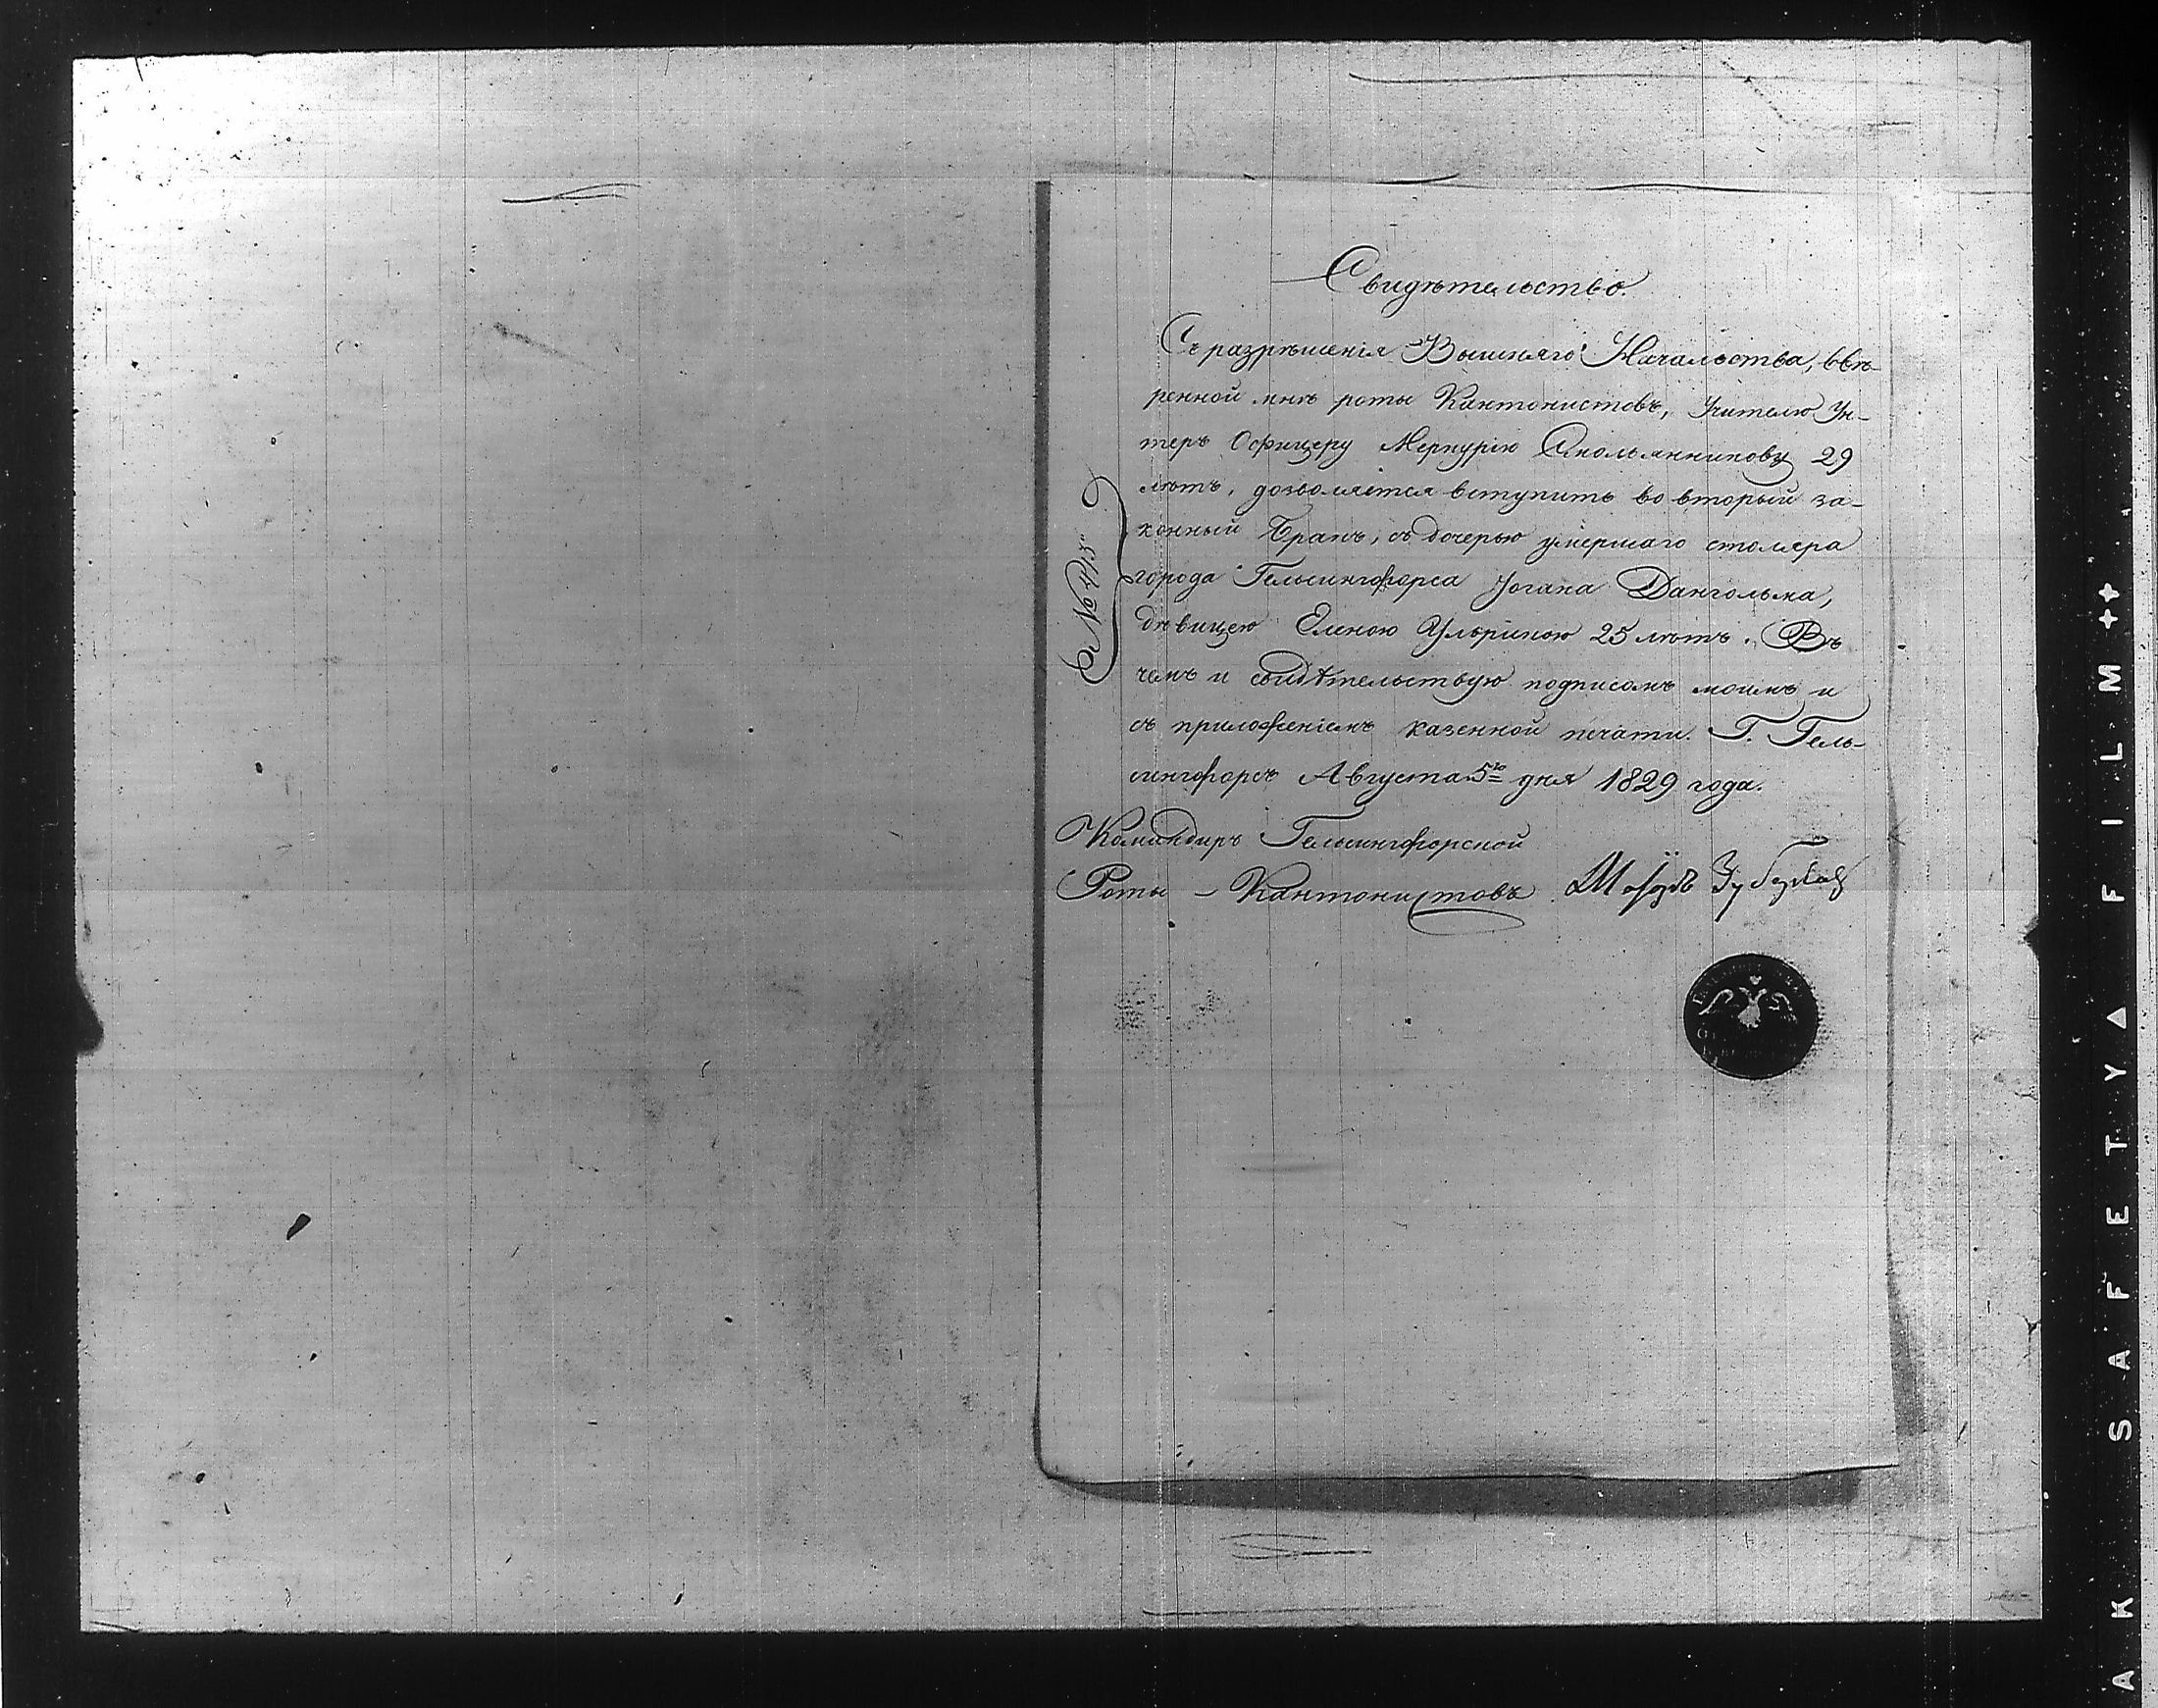 Свидѣтельство.
Съ разрѣшенія Вышняго Начальства, ввѣ-
ренной мнѣ роты Кантонистовъ, Учителю Ун-
теръ Офицеру Меркурію Смольянникову 29
лѣтъ, дозволяется вступить во вторый за-
конный бракъ, съ дочерью умершаго столяра
города Гельсингфорса Іогана Дангольма,
дѣвицею Еленою Ульрикою 25 лѣтъ. Въ
чемъ и свидѣтельствую подписомъ моимъ и
съ приложеніемъ казенной печати. Г. Гель-
сингфорсъ Августа 5го дня 1829 года.
№ 415
Командиръ Гельсингфорской
Роты - Кантонистовъ Маіоръ
SAFETY FILM